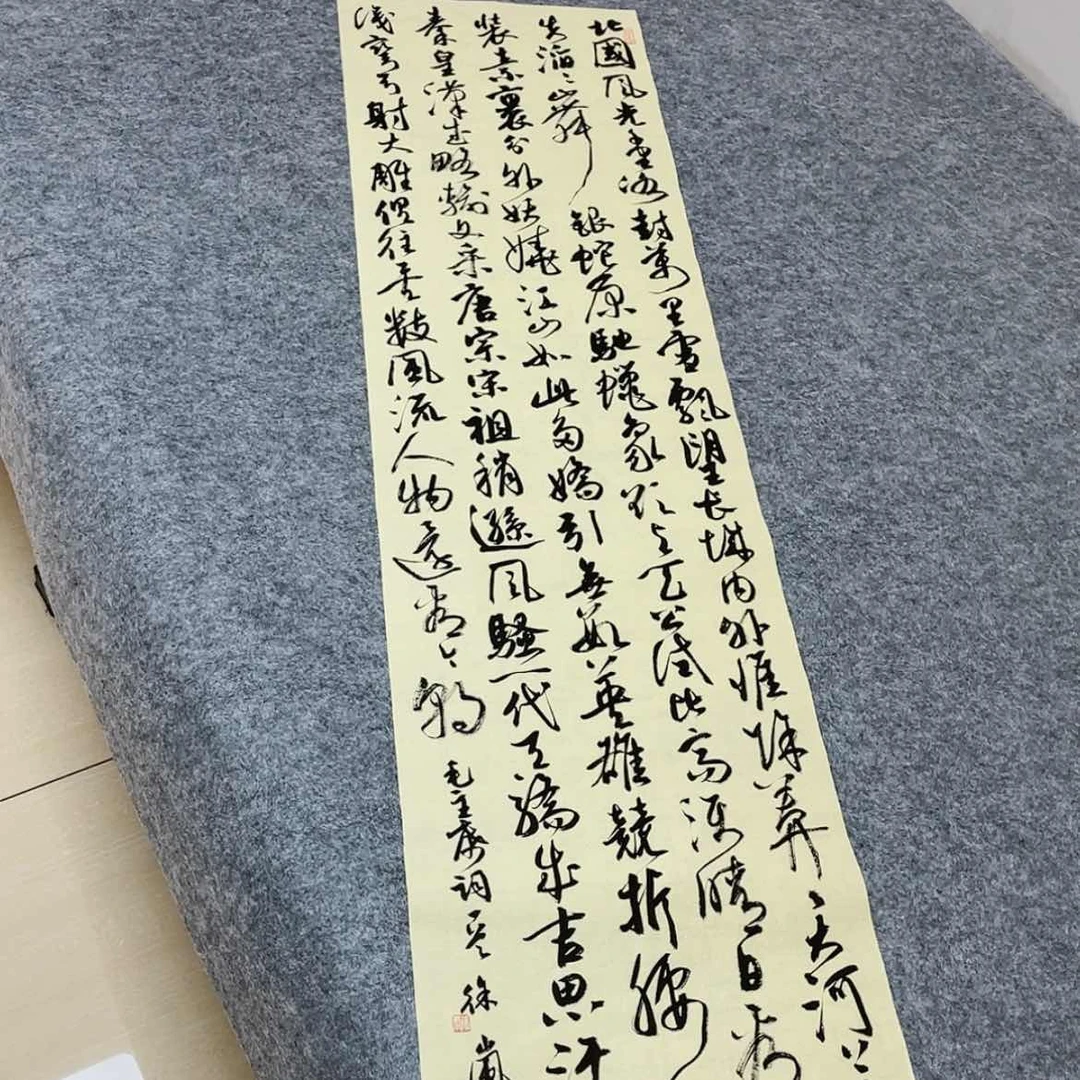 北國风光千里冰封萬里雪飄望长城内外惟馀莽〻大河上
失滔〻山舞銀蛇原馳蠟象欲与天公试比高须晴日看
装素裹分外妖嬈江山如此多嬌引無数英雄競折腰
秦皇漢武略输文采唐宗宋祖稍遜风騷一代天骄成吉思汗
識彎弓射大雕俱往矣数風流人物還看今朝
毛主席词 徐嵐